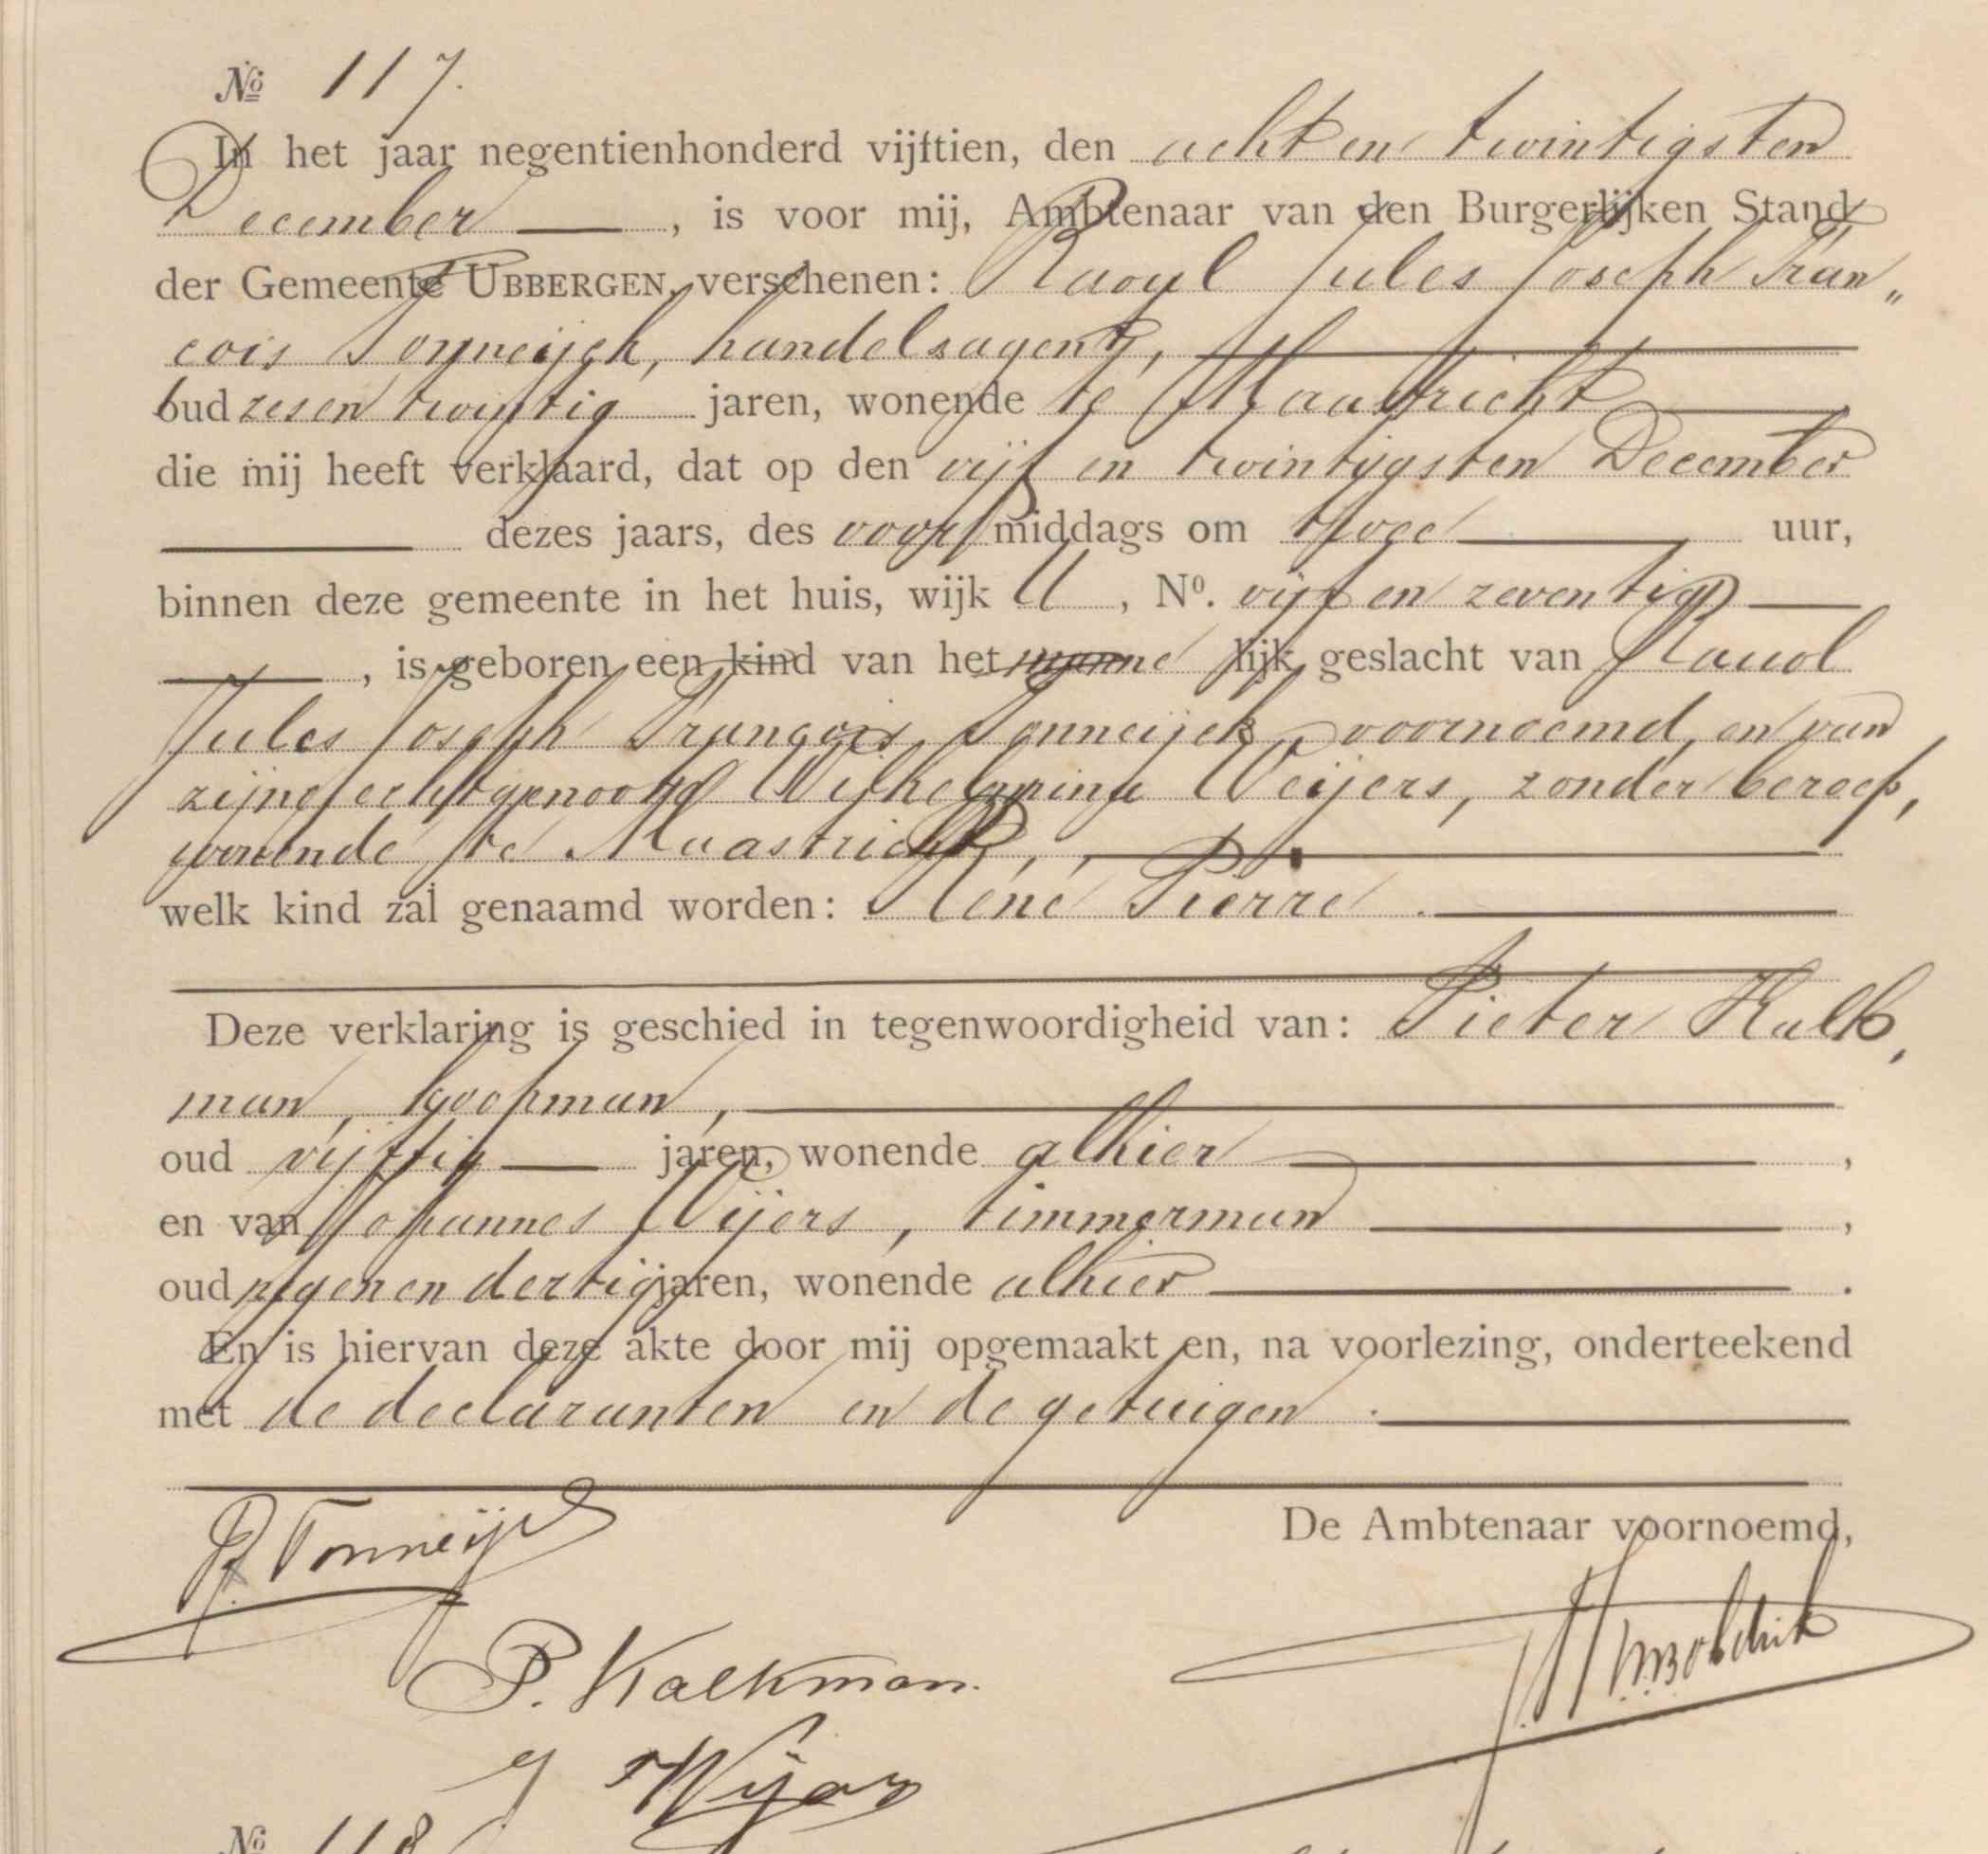 № 117.
In het jaar negentienhonderd vijftien, den acht en twintigsten
December, is voor mij, Ambtenaar van den Burgerlijken Stand
der Gemeente UBBERGEN, verschenen: Raoul Jules Joseph Fran„
cois Tonneijck, handelsagent,
oud zes en twintig jaren, wonende te Maastricht
die mij heeft verklaard, dat op den vijf en twintigsten December
dezes jaars, des voor middags om twee uur,
binnen deze gemeente in het huis, wijk U, Nº. vijf en zeventig
, is geboren een kind van het manne lijk geslacht van Raoul
Jules Joseph François Tonneijck voornoemd, en van
zijne echtgenoote Wilhelmina Weijers, zonder beroep,
wonende te Maastricht,,
welk kind zal genaamd worden: René Pierre.
Deze verklaring is geschied in tegenwoordigheid van: Pieter Kalk,
man, koopman,
oud vijftig jaren, wonende alhier,
en van Johannes Wijers, timmerman,
oud negen en dertig jaren, wonende alhier.
En is hiervan deze akte door mij opgemaakt en, na voorlezing, onderteekend
met de declaranten en de getuigen.
De Ambtenaar voornoemd,
Tonneijck
P. Kalkman.
J Wijers
№ 118